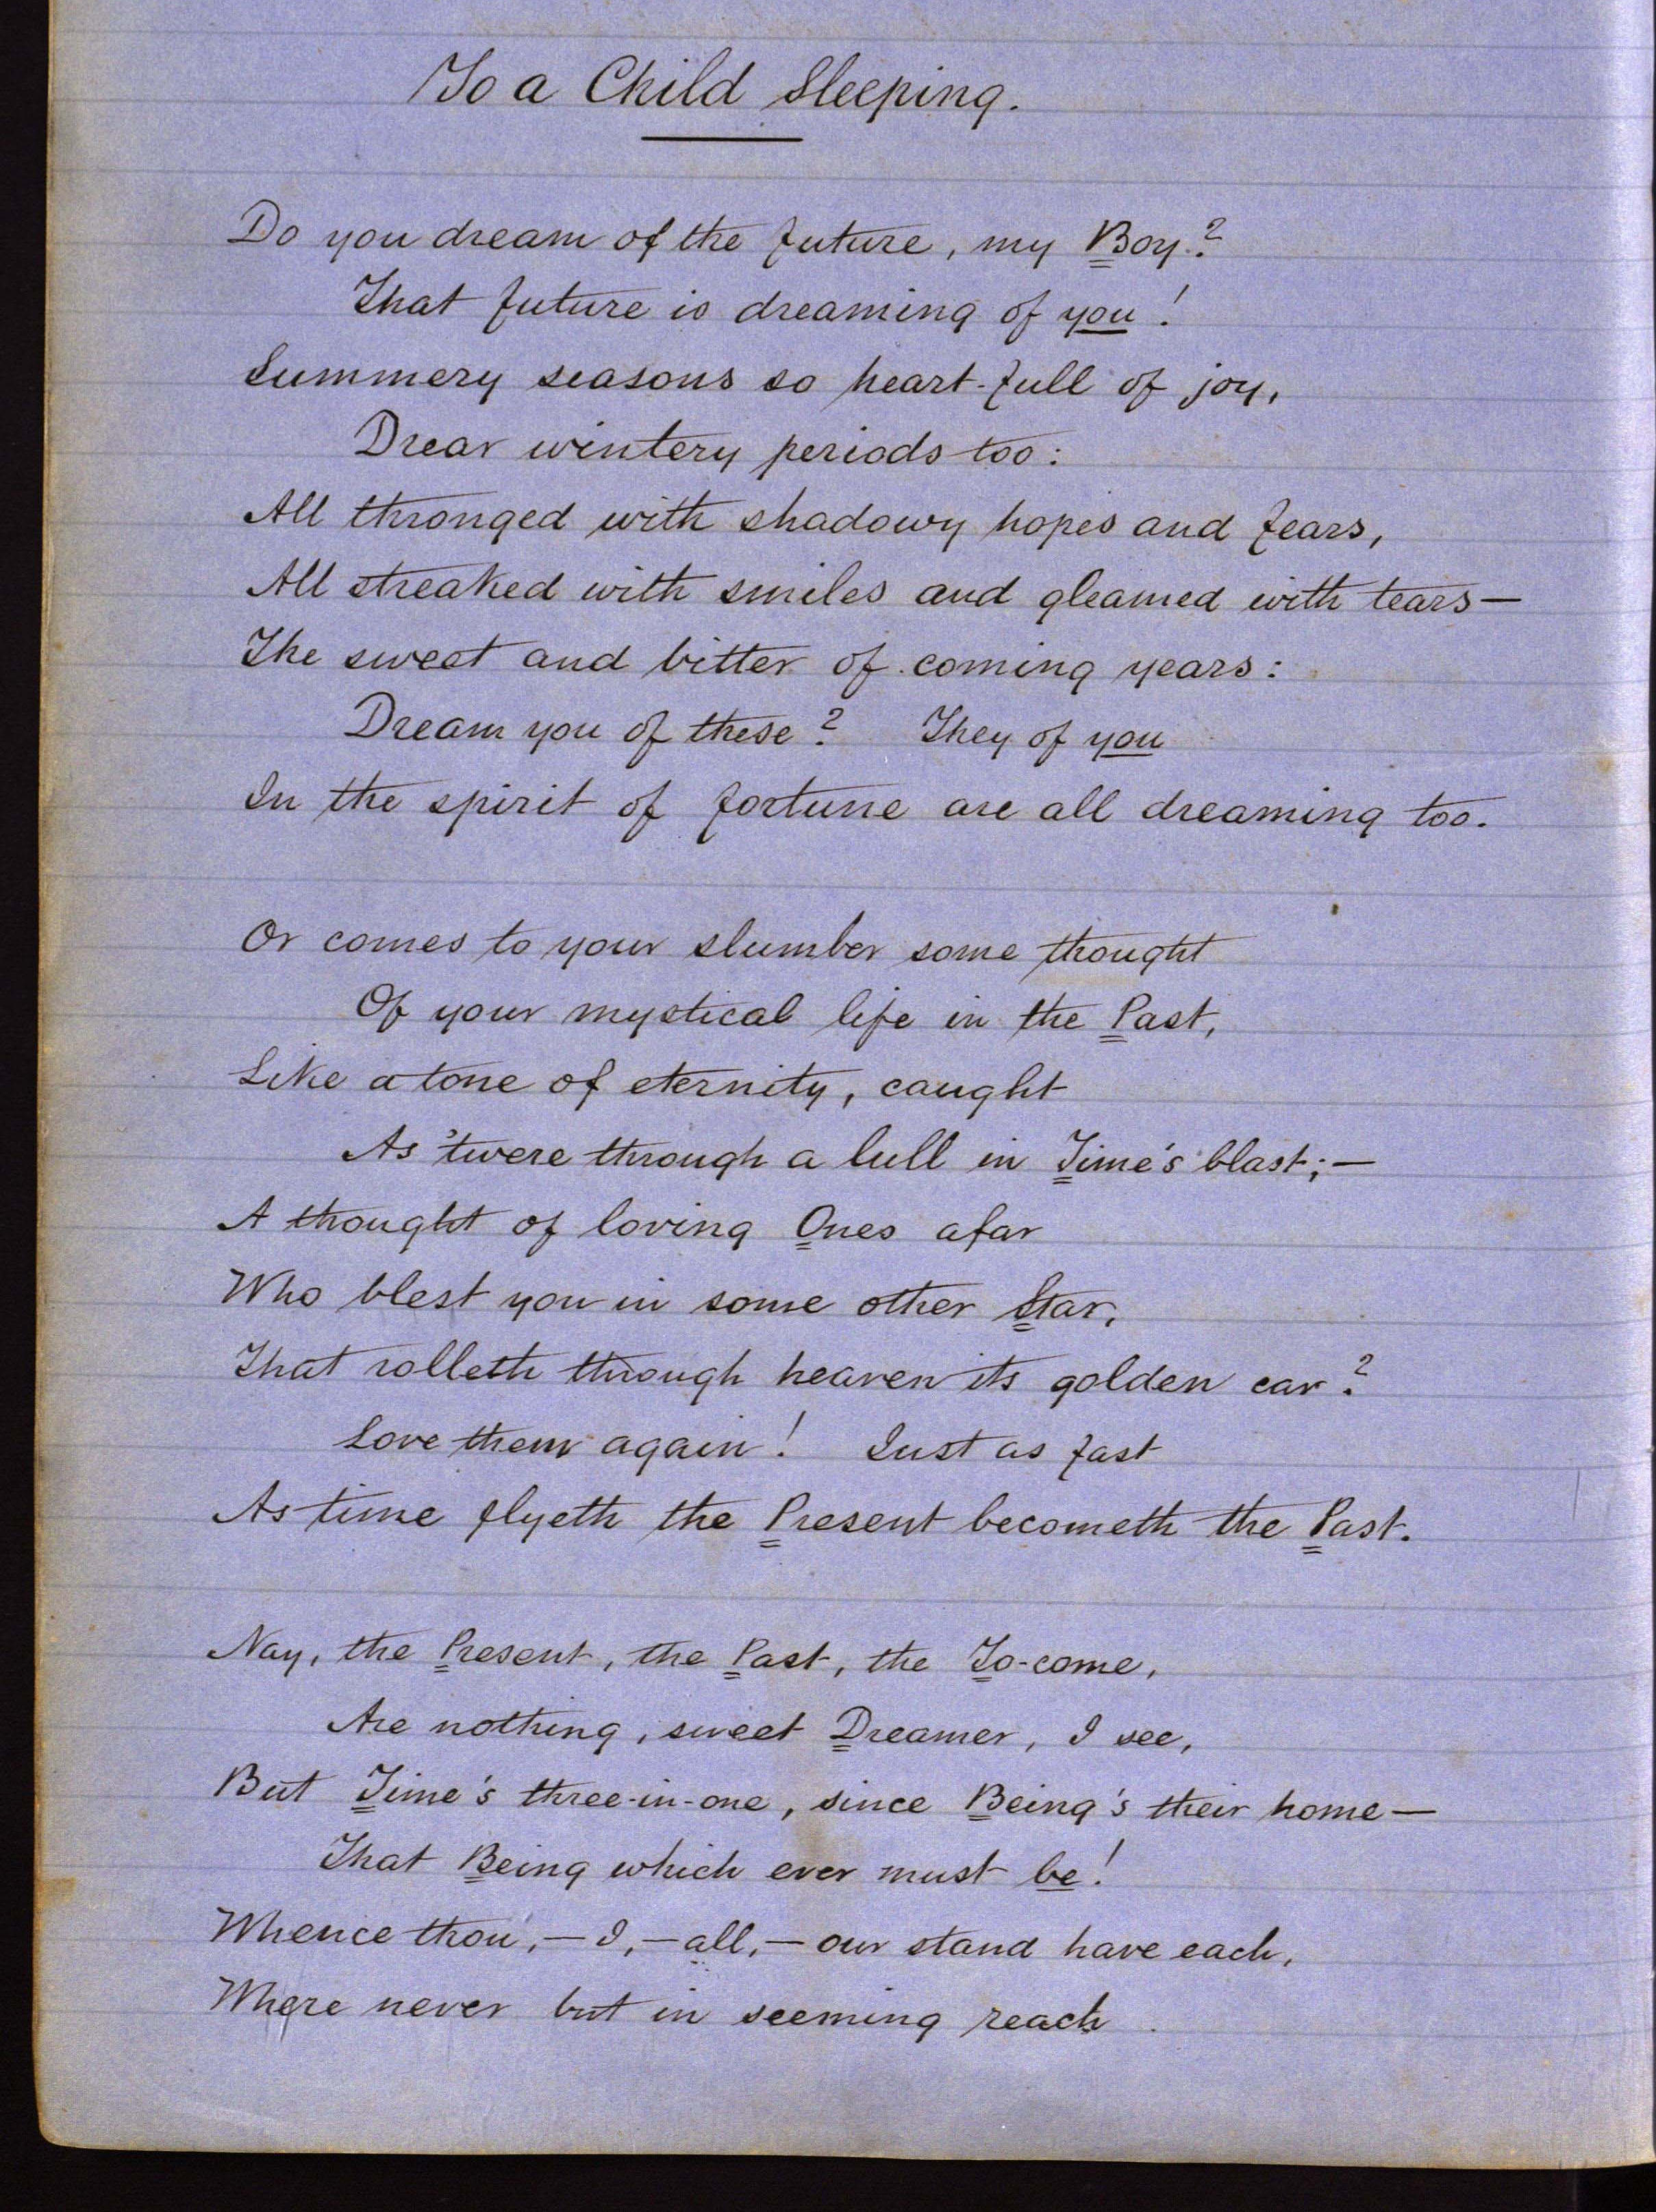 To a Child Sleeping.
Do you dream of the future, my Boy?
That future is dreaming of you!
Summery seasons so heart-full of joy,
Drear wintery periods too:
All thronged with shadowy hopes and fears,
All streaked with smiles and gleamed with tears—
The sweet and bitter of coming years:
Dream you of these? They of you
In the spirit of fortune are all dreaming too.
Or comes to your slumber some thought
Of your mystical life in the Past,
Like a tone of eternity, caught
As 'twere through a lull in Time's blast;—
A thought of loving Ones afar
Who blest you in some other Star,
That rolleth through heaven its golden car?
Love them again! Just as fast
As time flyeth the Present becometh the Past.
Nay, the Present, the Past, the To-come,
Are nothing, sweet Dreamer, I see,
But Time's three-in-one, since Being's their home—
That Being which ever must be!
Whence thou,—I,—all,—our stand have each,
Where never but in seeming reach